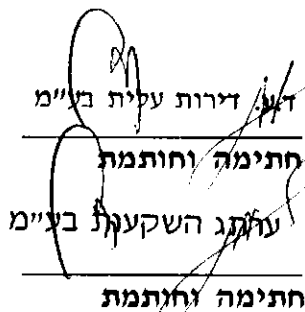 דירות עלית בע״מ
חתימה וחותמת
השקעות בע״מ
חתימה וחותמת